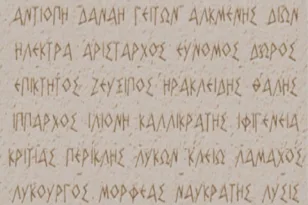 ΑΝΤΙΟΠΗ ΔΑΝΑΗ ΓΕΙΤΩΝ ΑΛΚΜΕΝΗΣ ΔΙΩΝ
ΗΛΕΚΤΡΑ ΑΡΙΣΤΑΡΧΟΣ ΕΥΝΟΜΟΣ ΔΩΡΟΣ
ΕΠΙΚΤΗΤΟΣ ΖΕΥΞΙΠΟΣ ΗΡΑΚΛΕΙΔΗΣ ΘΑΛΗΣ
ΙΠΠΑΡΧΟΣ ΙΛΙΟΝΗ ΚΑΛΛΙΚΡΑΤΗΣ ΙΦΙΓΕΝΕΙΑ
ΚΡΙΤΙΑΣ ΠΕΡΙΚΛΗΣ ΛΥΚΩΝ ΚΛΕΙΩ ΛΑΜΑΧΟΣ
ΛΥΚΟΥΡΓΟΣ ΜΟΡΦΕΑΣ ΝΑΥΚΡΑΤΗΣ ΛΥΣΙΣ